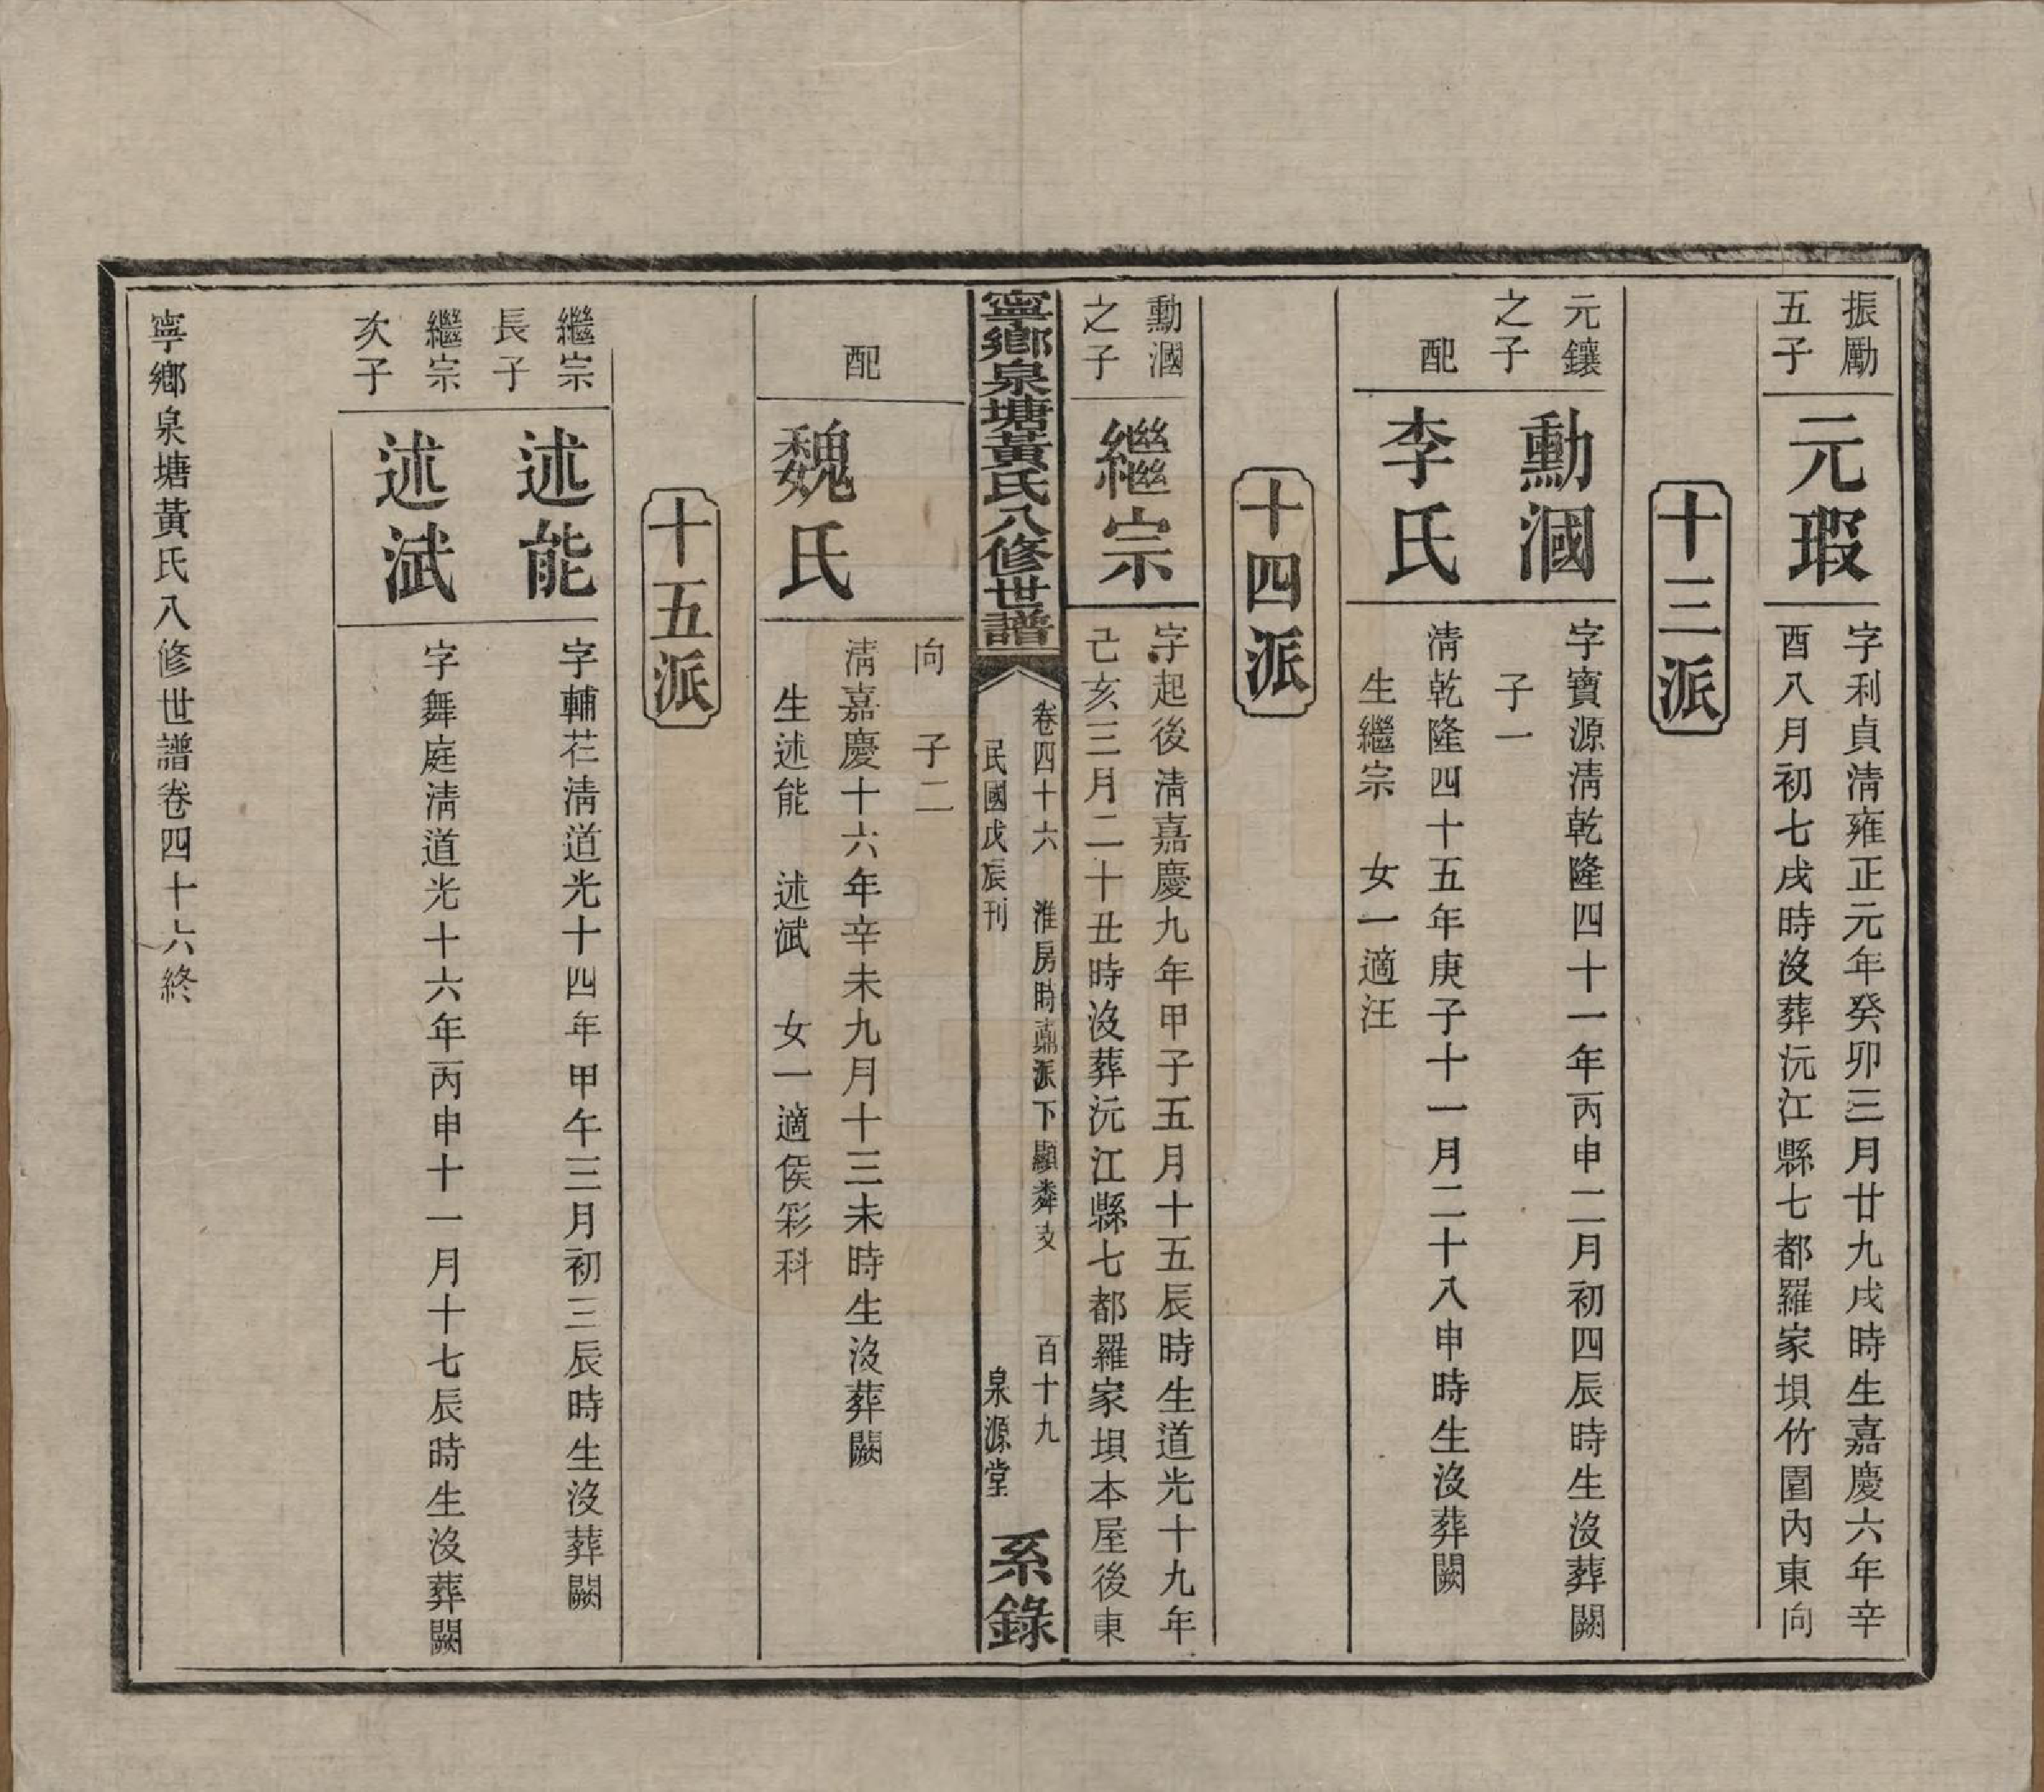 振勵
五子
元瑕
字利貞淸雍正元年癸卯三月廿九戌時生嘉慶六年辛
酉八月初七戌時沒葬沅江縣七都羅家垻竹圍內東向
十三派
元鑲
之子
勳漍
字寶源淸乾隆四十一年丙申二月初四辰時生沒葬闕
子一
配
李氏
淸乾隆四十五年庚子十一月二十八申時生沒葬闕
生繼宗　女一適汪
十四派
勳漍
之子
繼宗
字起後淸嘉慶九年甲子五月十五辰時生道光十九年
己亥三月二十丑時沒葬沅江縣七都羅家垻本屋後東
寧鄉泉塘黃氏八修世譜
卷四十六　淮房時鼒派下顯粦支　百十九
民國戊辰刊　泉源堂
系錄
向　子二
配
魏氏
淸嘉慶十六年辛未九月十三未時生沒葬闕
生述能　述淢　女一適侯彩科
十五派
繼宗
長子
述能
字輔茫淸道光十四年甲午三月初三辰時生沒葬闕
繼宗
次子
述淢
字舞庭淸道光十六年丙申十一月十七辰時生沒葬闕
寧鄉泉塘黃氏八修世譜卷四十六終